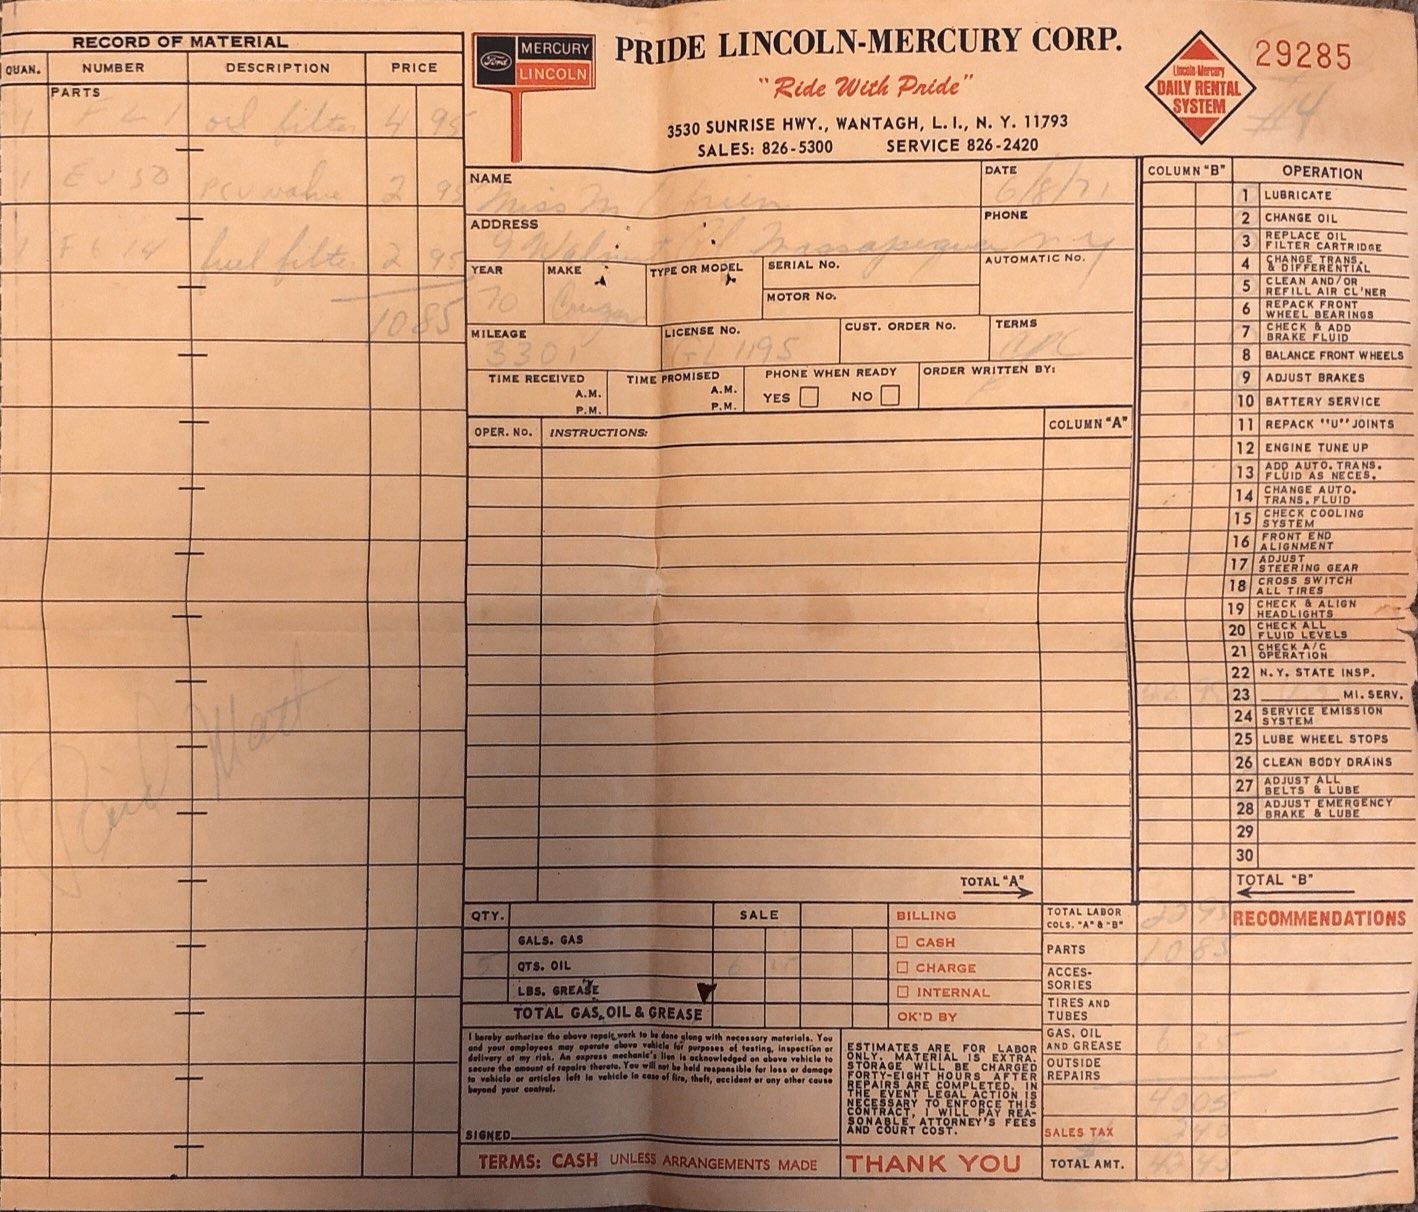 RECORD OF MATERIAL
QUAN. NUMBER DESCRIPTION PRICE
PARTS
1 FL1 oil filter 4 95
1 EV50 PCV valve 2 95
1 FG14 fuel filter 2 95
10 85
Ford MERCURY LINCOLN
PRIDE LINCOLN-MERCURY CORP.
"Ride With Pride"
3530 SUNRISE HWY., WANTAGH, L. I., N. Y. 11793
SALES: 826-5300 SERVICE 826-2420
Lincoln-Mercury
DAILY RENTAL
SYSTEM
29285
#4
NAME Miss M
DATE 6/8/71
ADDRESS 9 Walnut Massapequa N Y
PHONE
YEAR 70
MAKE Cougar
TYPE OR MODEL
SERIAL No.
MOTOR No.
AUTOMATIC No.
MILEAGE 3301
LICENSE No. GL 1195
CUST. ORDER No.
TERMS
TIME RECEIVED A.M. P.M.
TIME PROMISED A.M. P.M.
PHONE WHEN READY
YES NO
ORDER WRITTEN BY:
OPER. No. INSTRUCTIONS: COLUMN "A"
TOTAL "A"
COLUMN "B" OPERATION
1 LUBRICATE
2 CHANGE OIL
3 REPLACE OIL FILTER CARTRIDGE
4 CHANGE TRANS. & DIFFERENTIAL
5 CLEAN AND/OR REFILL AIR CL'NER
6 REPACK FRONT WHEEL BEARINGS
7 CHECK & ADD BRAKE FLUID
8 BALANCE FRONT WHEELS
9 ADJUST BRAKES
10 BATTERY SERVICE
11 REPACK "U" JOINTS
12 ENGINE TUNE UP
13 ADD AUTO. TRANS. FLUID AS NECES.
14 CHANGE AUTO. TRANS. FLUID
15 CHECK COOLING SYSTEM
16 FRONT END ALIGNMENT
17 ADJUST STEERING GEAR
18 CROSS SWITCH ALL TIRES
19 CHECK & ALIGN HEADLIGHTS
20 CHECK ALL FLUID LEVELS
21 CHECK A/C OPERATION
22 N.Y. STATE INSP.
23 MI. SERV.
24 SERVICE EMISSION SYSTEM
25 LUBE WHEEL STOPS
26 CLEAN BODY DRAINS
27 ADJUST ALL BELTS & LUBE
28 ADJUST EMERGENCY BRAKE & LUBE
29
30
TOTAL "B"
QTY. SALE
GALS. GAS
5 QTS. OIL 6 25
LBS. GREASE
TOTAL GAS, OIL & GREASE
BILLING
CASH
CHARGE
INTERNAL
OK'D BY
I hereby authorize the above repair work to be done along with necessary materials. You
and your employees may operate above vehicle for purposes of testing, inspection or
delivery at my risk. An express mechanic's lien is acknowledged on above vehicle to
secure the amount of repairs thereto. You will not be held responsible for loss or damage
to vehicle or articles left in vehicle in case of fire, theft, accident or any other cause
beyond your control.
SIGNED
ESTIMATES ARE FOR LABOR
ONLY. MATERIAL IS EXTRA.
STORAGE WILL BE CHARGED
FORTY-EIGHT HOURS AFTER
REPAIRS ARE COMPLETED. IN
THE EVENT LEGAL ACTION IS
NECESSARY TO ENFORCE THIS
CONTRACT, I WILL PAY REA-
SONABLE ATTORNEY'S FEES
AND COURT COST.
TERMS: CASH UNLESS ARRANGEMENTS MADE
THANK YOU
TOTAL LABOR COLS. "A" & "B" 22 95
PARTS 10 85
ACCES-
SORIES
TIRES AND
TUBES
GAS, OIL
AND GREASE 6
OUTSIDE
REPAIRS
40 05
SALES TAX 2 40
TOTAL AMT. 42 45
RECOMMENDATIONS